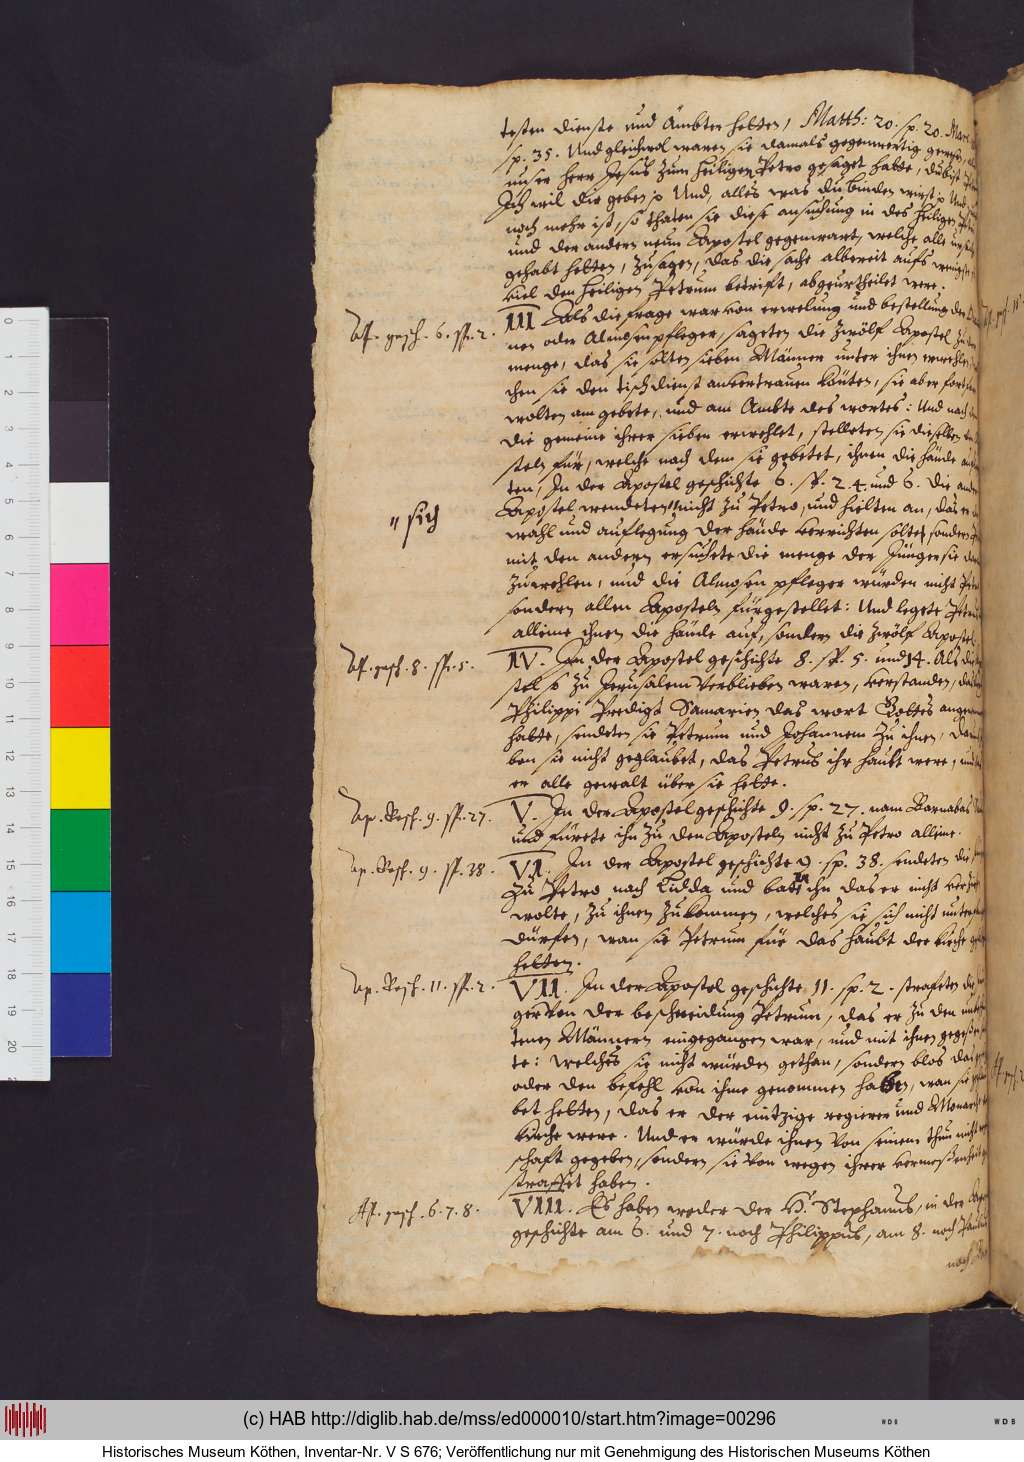 testen dienste und Ambter hetten, Matth: 20. sp. 20. Marc
sp. 35. Und gleichwol waren sie damals gegenwertig gewesen, als
unser herr Jesus zum heiligen Petro gesaget hatte, du bist
Ich wil dir geben p Und, alles was du binden wirst p Und
noch mehr ist, so thaten sie diese ansuchung in des heiligen
und der andern neun Apostel gegenwart, welche alle ursach
gehabt hetten, zusagen, das die sache albereit aufs wenigste
viel den heiligen Petrum betrift, abgeurtheilet were.
Ap. gesch. 6. sp. 2.
III Als die frage war von erwelung und bestellung der
nen oder Almosenpfleger, sageten die zwölf Apostel zu der
menge, das sie solten sieben Männer unter ihnen erwehlen,
chen sie den tischdienst anvertrauen könten, sie aber fort
wolten am gebete, und am Ambte des wortes: Und nach dem
die gemeine ihrer sieben erwehlet, stelleten sie dieselben den
steln für, welche nach dem sie gebetet, ihnen die hände auf
ten, In der Apostel geschichte 6. sp. 2. 4. und 6. Die andern
" sich
Apostel wendeten " nicht zu Petro, und hielten an, das er
wahl und auflegung der hände verrichten solte, sondern
mit den andern ersuchete die menge der Jünger sie
zuerwehlen, und die Almosen pfleger würden nicht Petro
sondern allen Aposteln fürgestellet: Und legete Petrus
alleine ihnen die hände auf, sondern die zwölf Apostel.
Ap. gesch. 8. sp. 5.
IV. In der Apostel geschichte 8. sp. 5. und 14. Als die
stel p zu Jerusalem verblieben waren, verstanden, das
Philippi Predigt Samarien das wort Gottes angenommen
hatte, sendeten sie Petrum und Johannem zu ihnen,
ben sie nicht geglaubet, das Petrus ihr haubt were, und
er alle gewalt über sie hette.
Ap. Gesch. 9. sp. 27.
V. In der Apostel geschichte 9. sp. 27. nam Barnabas
und fürete ihn zu den Aposteln nicht zu Petro alleine.
Ap. Gesch. 9. sp. 38.
VI. In der Apostel geschichte 9. sp. 38. sendeten die
zu Petro nach Lidda und baten ihn das er nicht
wolte, zu ihnen zukommen, welches sie sich nicht
dürfen, wan sie Petrum für das haubt der kirche
hetten.
Ap. Gesch. 11. sp. 2.
VII. In der Apostel geschichte 11. sp. 2. strafeten die
ger von der beschneidung Petrum, das er zu den
tenen Männern eingegangen war, und mit ihnen gegeßen
te: welches sie nicht würden gethan, sondern blos
oder den befehl von ihme genommen haben, wan sie
bet hetten, das er der eintzige regierer und Monarch
kirche were. Und er würde ihnen von seinem thun nicht
schaft gegeben, sondern sie von wegen ihrer vermeßenheit
straffet haben.
Ap. gesch. 6. 7. 8.
VIII. Es haben weder der H. Stephanus, in der
geschichte am 6. und 7. noch Philippus, am 8. noch Paulus
noch
0 1 2 3 4 5 6 7 8 9 10 11 12 13 14 15 16 17 18 19 20
(c) HAB http://diglib.hab.de/mss/ed000010/start.htm?image=00296
WDB
WDB
Historisches Museum Köthen, Inventar-Nr. V S 676; Veröffentlichung nur mit Genehmigung des Historischen Museums Köthen